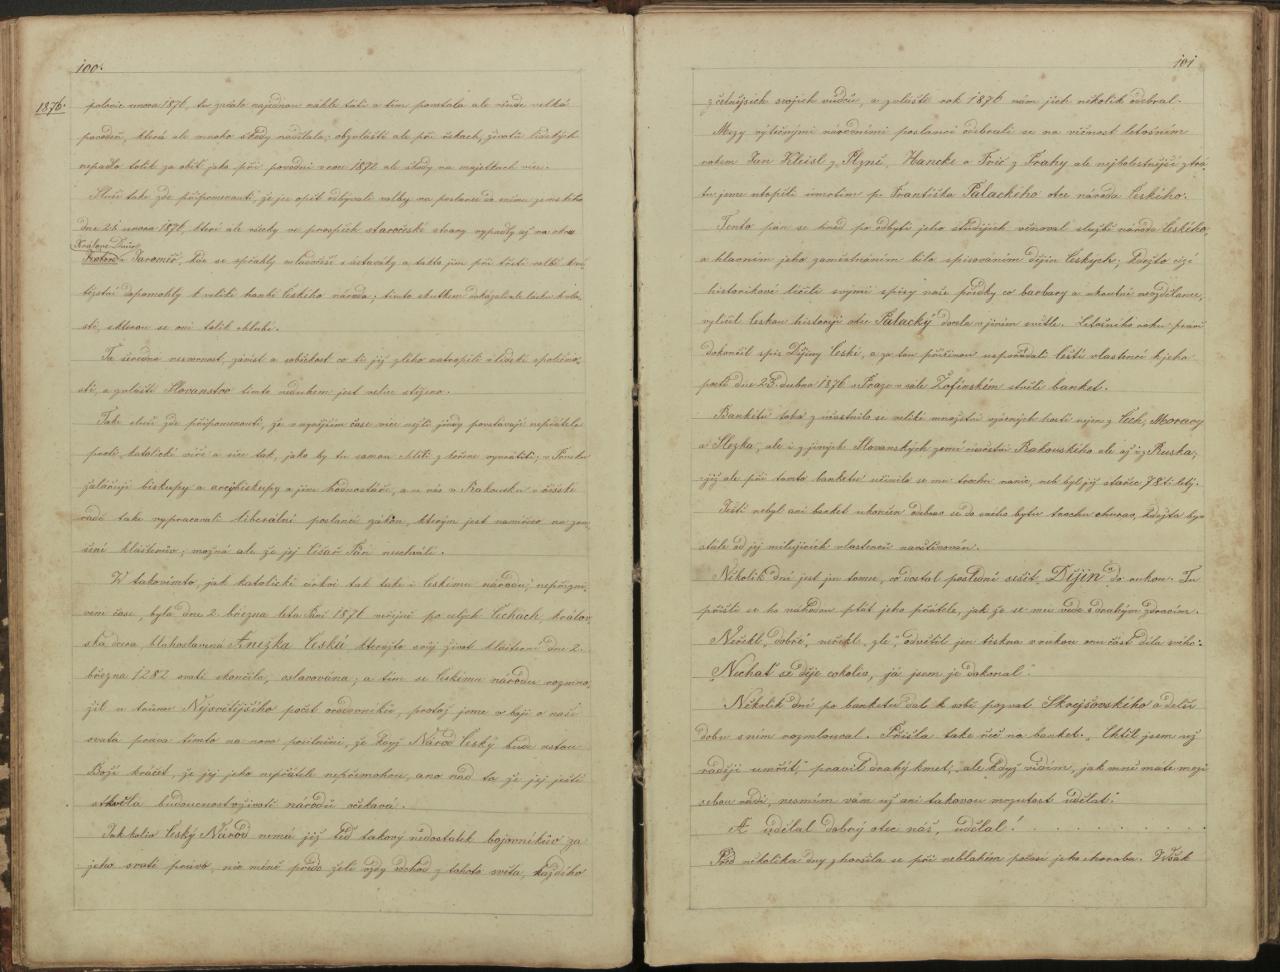 100.
1876.
polovic února 1876, tu začalo najednou náhle táti a tím povstala ale všude velká
povodeň, která ale mnoho škody nadělala; obzvláště ale při řekách, životů lidských
nepadlo tolik za oběť jako při povodni v roce 1872 ale škody na majetkách více.
Sluší také zde připomenouti, že jsou opět odbývali volby na poslance do sněmu zemského
dne 21 února 1876, které ale všecky ve prospěch staročeské strany vypadly až na okres
Králové Dvůr
Jaroměř, kde se spřáhly mladočeši s ústaváky a takto jim při třetí volbě k
vítězství dopomohly k veliké hanbě českého národa; tímto skutkem dokázali lásku k vla
sti, s kterou se oni tolik chlubí.
Ta neshoda nesvornost, závist a sobeckost co ti již zlého natropili v lidské společno
sti, a zvláště Slovanstvo tímto neduhem jest velice stíženo.
Také sluší zde připomenouti, že v nynějším čase více nežli jindy povstávají nepřátelé
proti katolické víře a sice tak, jako by tu samou chtěli z kořene vyvrátiti; v Prusku
žalářují biskupy a arcybiskupy a jiné hodnostáře, a u nás v Rakousku v říšské
radě také vypracovali liberální poslanci zákon, kterým jest namířeno na zru
šení klášterův; možná ale že jej Císař Pán neschválí.
V takovémto, jak katolické církvi tak také i českému národu, nepřízni
vém čase, byla dne 2. března léta Páně 1876 veřejně po celých Čechách, králov
ská dcera blahoslavená Anežka Česká kterážto svůj život klášterní dne 2.
března 1282 svatě skončila, oslavována; a tím se českému národu rozmno
žil u trůnu Nejsvětějšího počet orodovníků, pročež jsme v boji o naše
svatá práva tímto na novo posilněni, že když Národ Český bude cestou
Boží kráčet, že jej jeho nepřátelé nepřemohou, ano nad to že jej ještě
skvělá budoucnost v životě národů očekává.
Jak koliv český Národ nemá již teď takový nedostatek bojovníkův za
jeho svaté právo, nic méně předc želí vždy odchod z tohoto světa, každého
101
z čelnějších svojich vůdců, a zvláště rok 1876 nám jich několik odebral.
Mezy výtečnými národními poslanci odebrali se na věčnost letošním
rokem Jan Kleisl z Plzně, Hancke a Frič z Prahy ale nejbolestnější ztrá
tu jsme utrpěli úmrtím p. Františka Palackého otce národa Českého.
Tento pán se hned po odbytí jeho studijích věnoval službě národa Českého,
a hlavním jeho zaměstnáním bilo spisováním dějin Českých; kdežto cizí
historikové líčili svými spisy naše předky co barbary a ukrutné nevzdělance,
vylíčil Českou historyji otec Palacký docela v jiném světle. Letošního roku právě
dokončil spis Dějiny České, a za tou příčinou uspořádali čeští vlastenci k jeho
poctě dne 23. dubna 1876 v Praze v sále Žofínském skvělí banket.
Banketu toho z účastnilo se veliké množství vzácných hostí nejen z Čech, Moravy
a Slezka, ale i z jiných Slovanských zemí mocnářství Rakouského ale až i z Ruska,
však ale při tomto banketu učinilo se mu trochu nanic, neb byl již stařec 78 ti letý.
Ještě nebyl ani banket ukončen odebral se do svého bytu trochu churav, kdežto byl
stále od jej milujících vlastenců navštěvován.
Několik dní jest jen tomu, co dostal poslední sešit "Dějin" do rukou. Tu
přišli se ho náhodou ptát jeho přátelé, jak že se mu vede s drahým zdravím.
"Neřekl, dobře", neřekl, zle, odvětil jen tiskna v rukou onu část díla svého:
"Nechať se děje cokoliv, já jsem je dokonal."
Několik dní po banketu dal k sobě pozvati Skrejšovského a delší
dobu s ním rozmlouval. Přišla také řeč na banket. "Chtěl jsem už
raději umřít," pravil drahý kmet, "ale když vidím, jak mne máte mezi
sebou rádi, nesmím vám už ani takovou mrzutost udělat."
A udělal dobrý otec náš, udělal! . . . . . . . . . .
Před několika dny zhoršila se při neblahém počasí jeho choroba. Však